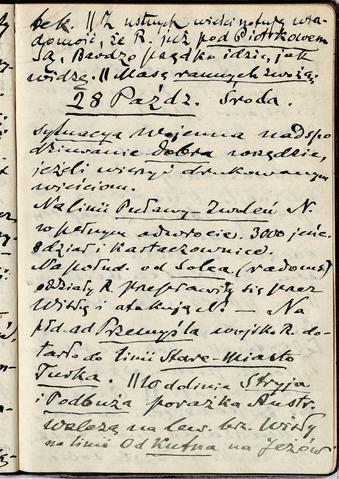 bek. || Z ustnych wieści notuję wia-
domość, że R. już pod Piotrkowem
są. Bardzo prędko idzie, jak
widzę. || Masę rannych zwożą.
28 Paźdz. Środa.
Sytuacya wojenna nadspo
dziewanie dobra wszędzie,
jeżeli wierzyć drukowanym
wieściom.
Na linii Puławy-Zwoleń N.
w pełnym odwrocie. 3000 jeńc.
8 dział i kartaczownice.
Na połud. od Solca (radoms)
oddziały R. przeprawiły się przez
Wisłę i atakują N! — Na
płd. od Przemyśla wojsko R. do-
tarło do linii Stare-Miasto
Turka. || W dolinie Stryja
i Podbuża porażka Austr.
Walczą na lew. brz. Wisły
na linii od Kutna na Jeżów